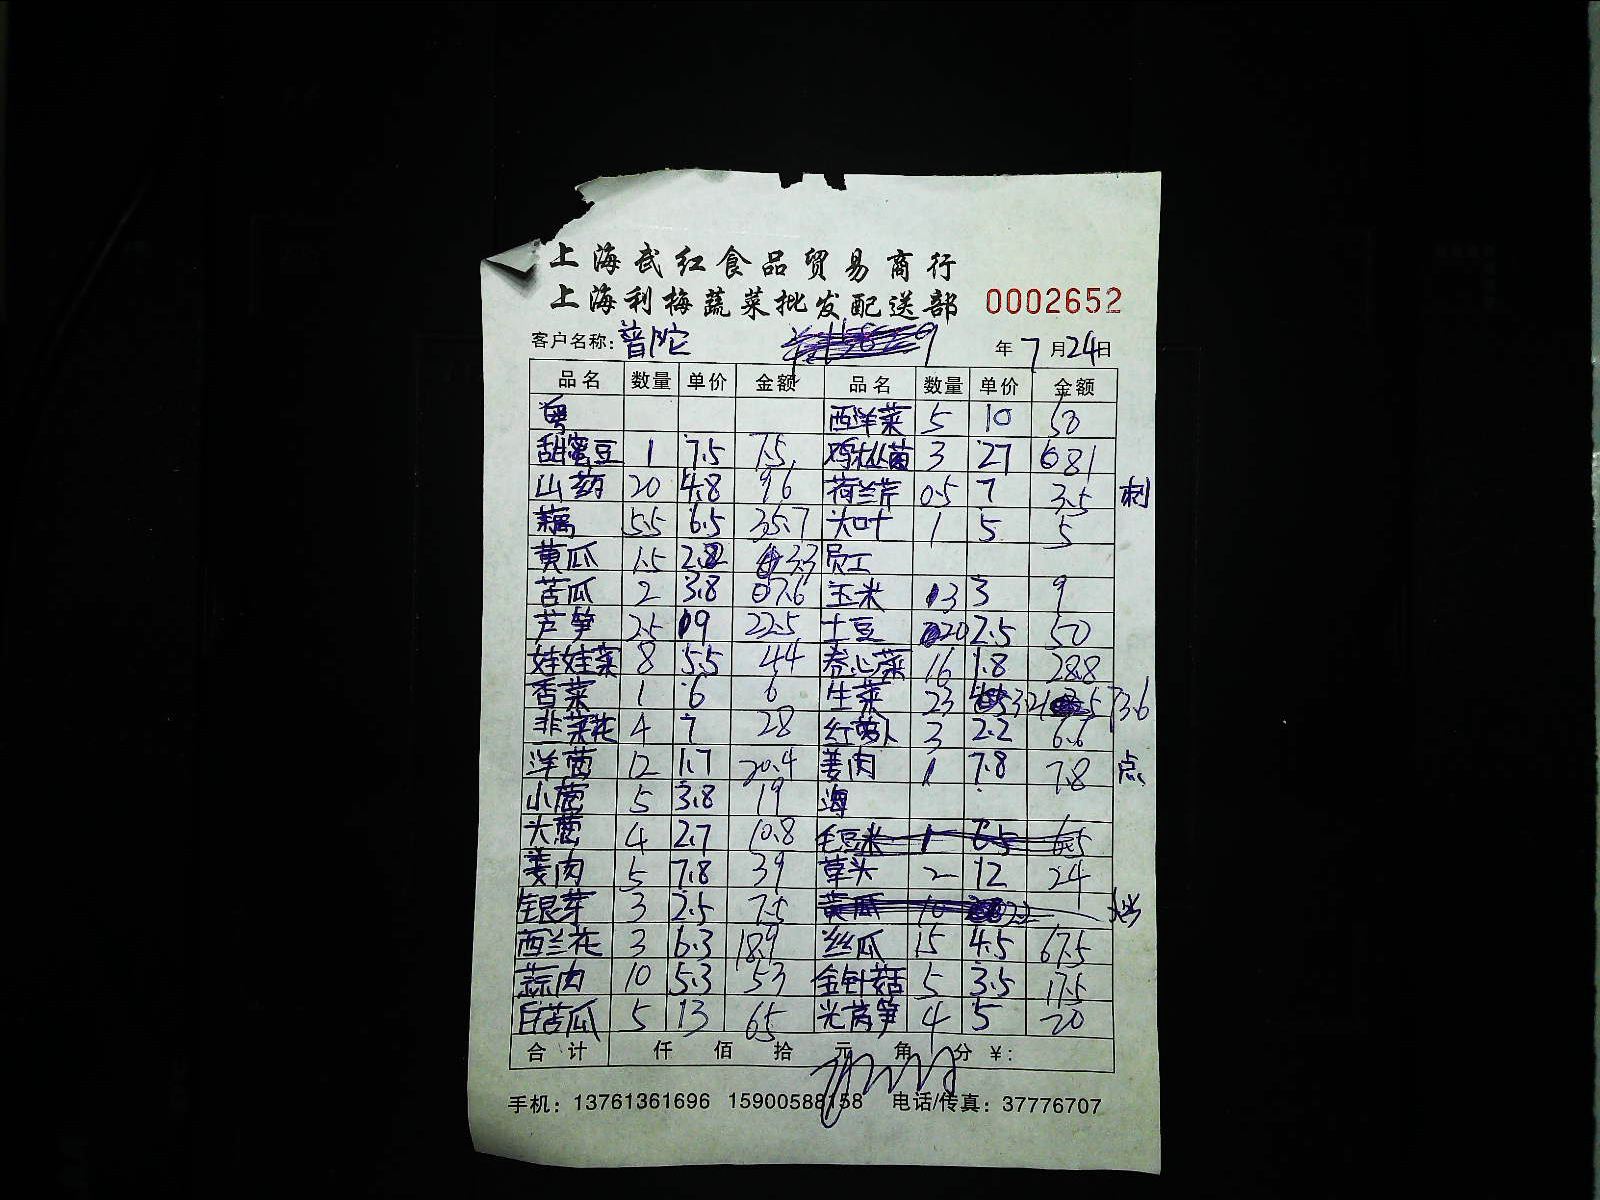 上海武红食品贸易商行
上海利梅蔬菜批发配送部 0002652
客户名称：普陀 年 7 月 24 日
品名 数量 单价 金额 品名 数量 单价 金额
粤 西洋菜 5 10 50
甜蜜豆 1 7.5 7.5 鸡枞菌 3 27 81
山药 20 4.8 96 荷兰芹 0.5 7 3.5 刺
藕 5.5 6.5 35.7 大叶 1 5 5
黄瓜 1.5 2.2 3.3 员工
苦瓜 2 3.8 7.6 玉米 3 3 9
芦笋 2.5 9 22.5 土豆 20 2.5 50
娃娃菜 8 5.5 44 卷心菜 16 1.8 28.8
香菜 1 6 6 生菜 23 3.2 73.6
韭菜花 4 7 28 红萝卜 3 2.2 6.6
洋葱 12 1.7 20.4 姜肉 1 7.8 7.8 点
小葱 5 3.8 19 海
大葱 4 2.7 10.8 毛豆米 1 6.5 6.5
姜肉 5 7.8 39 草头 2 12 24
银芽 3 2.5 7.5 黄瓜 10 2.2
西兰花 3 6.3 18.9 丝瓜 15 4.5 67.5
蒜肉 10 5.3 53 金针菇 5 3.5 17.5
白苦瓜 5 13 65 光莴笋 4 5 20
合计 仟 佰 拾 元 角 分 ¥：
手机：13761361696 15900588158 电话/传真：37776707